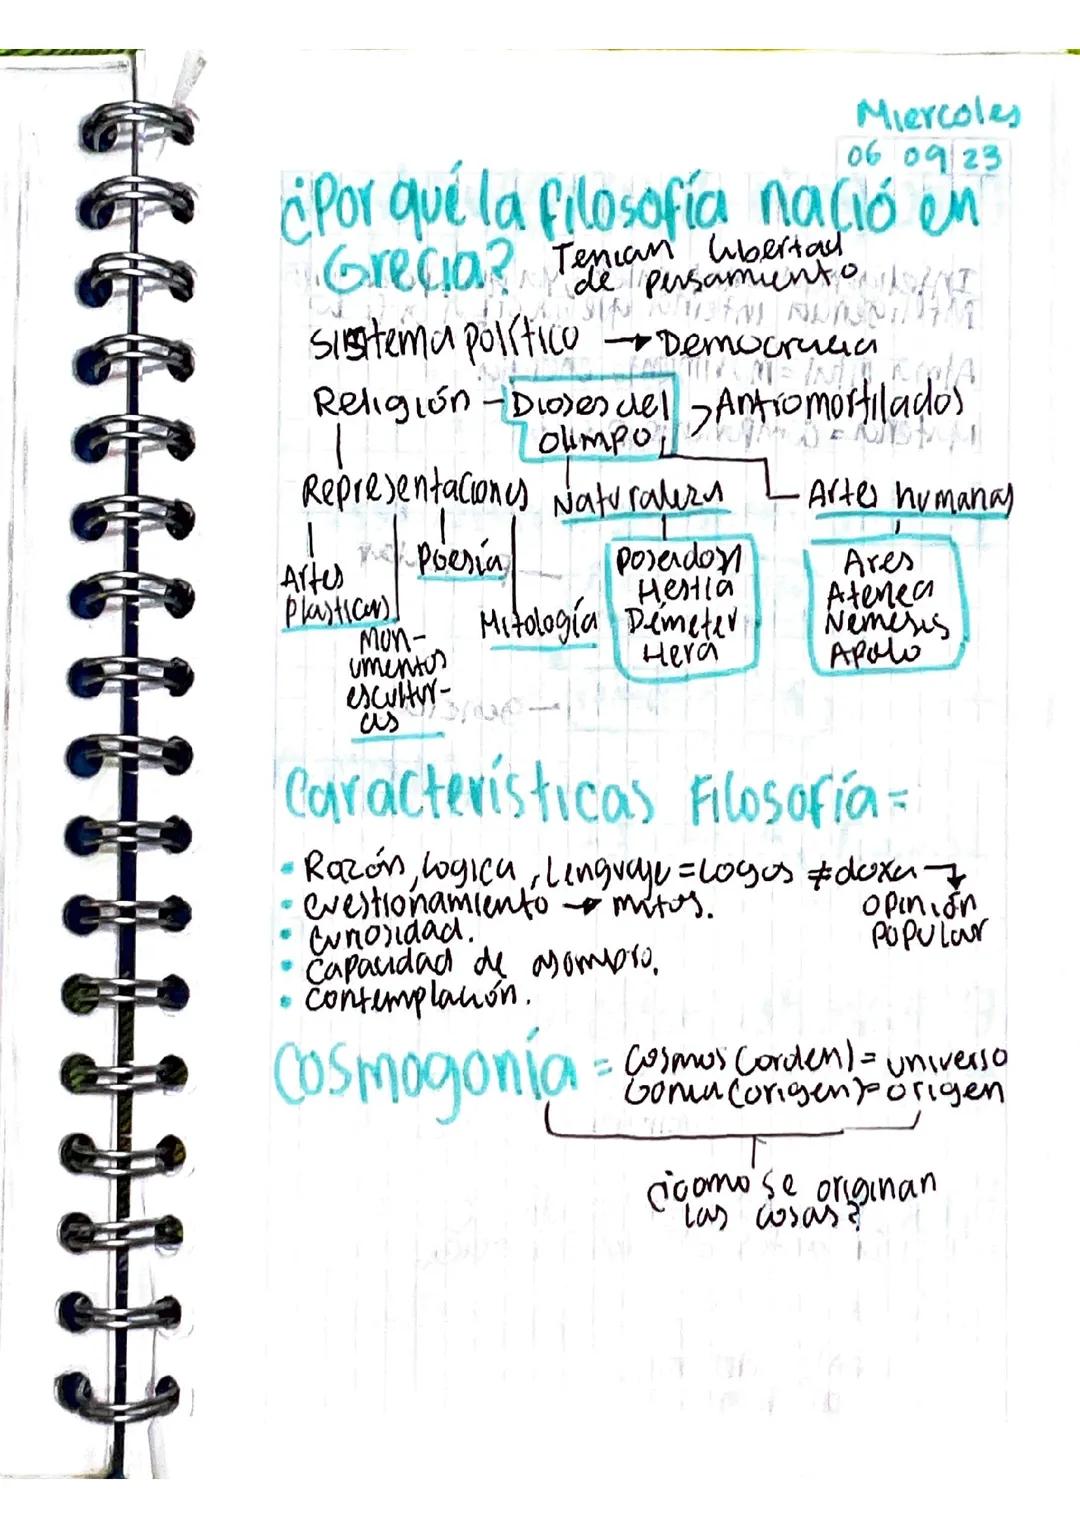 Miercoles
06 09 23
¿Por qué la filosofía nació en
Grecia? Tenian libertad
de pensamiento
sistema político → Democracia
Religión - Dioses del → Antromorfilados
olimpo
Representaciones Naturaleza Artes humanas
Artes
Plasticas
Poesía
Mitología
Monumentos
esculturcas
Poseidon
Hestia
Démeter
Hera
Ares
Atenea
Nemesis
Apolo
Características Filosofía =
• Razón, logica, Lenguaje = Logos ≠ doxa → opinión
popular
• cuestionamiento → mitos.
• curiosidad.
• capacidad de asombro.
• contemplación.
Cosmogonía = Cosmos (orden) = universo
Gonia (origen) = origen
¿como se originan
las cosas?